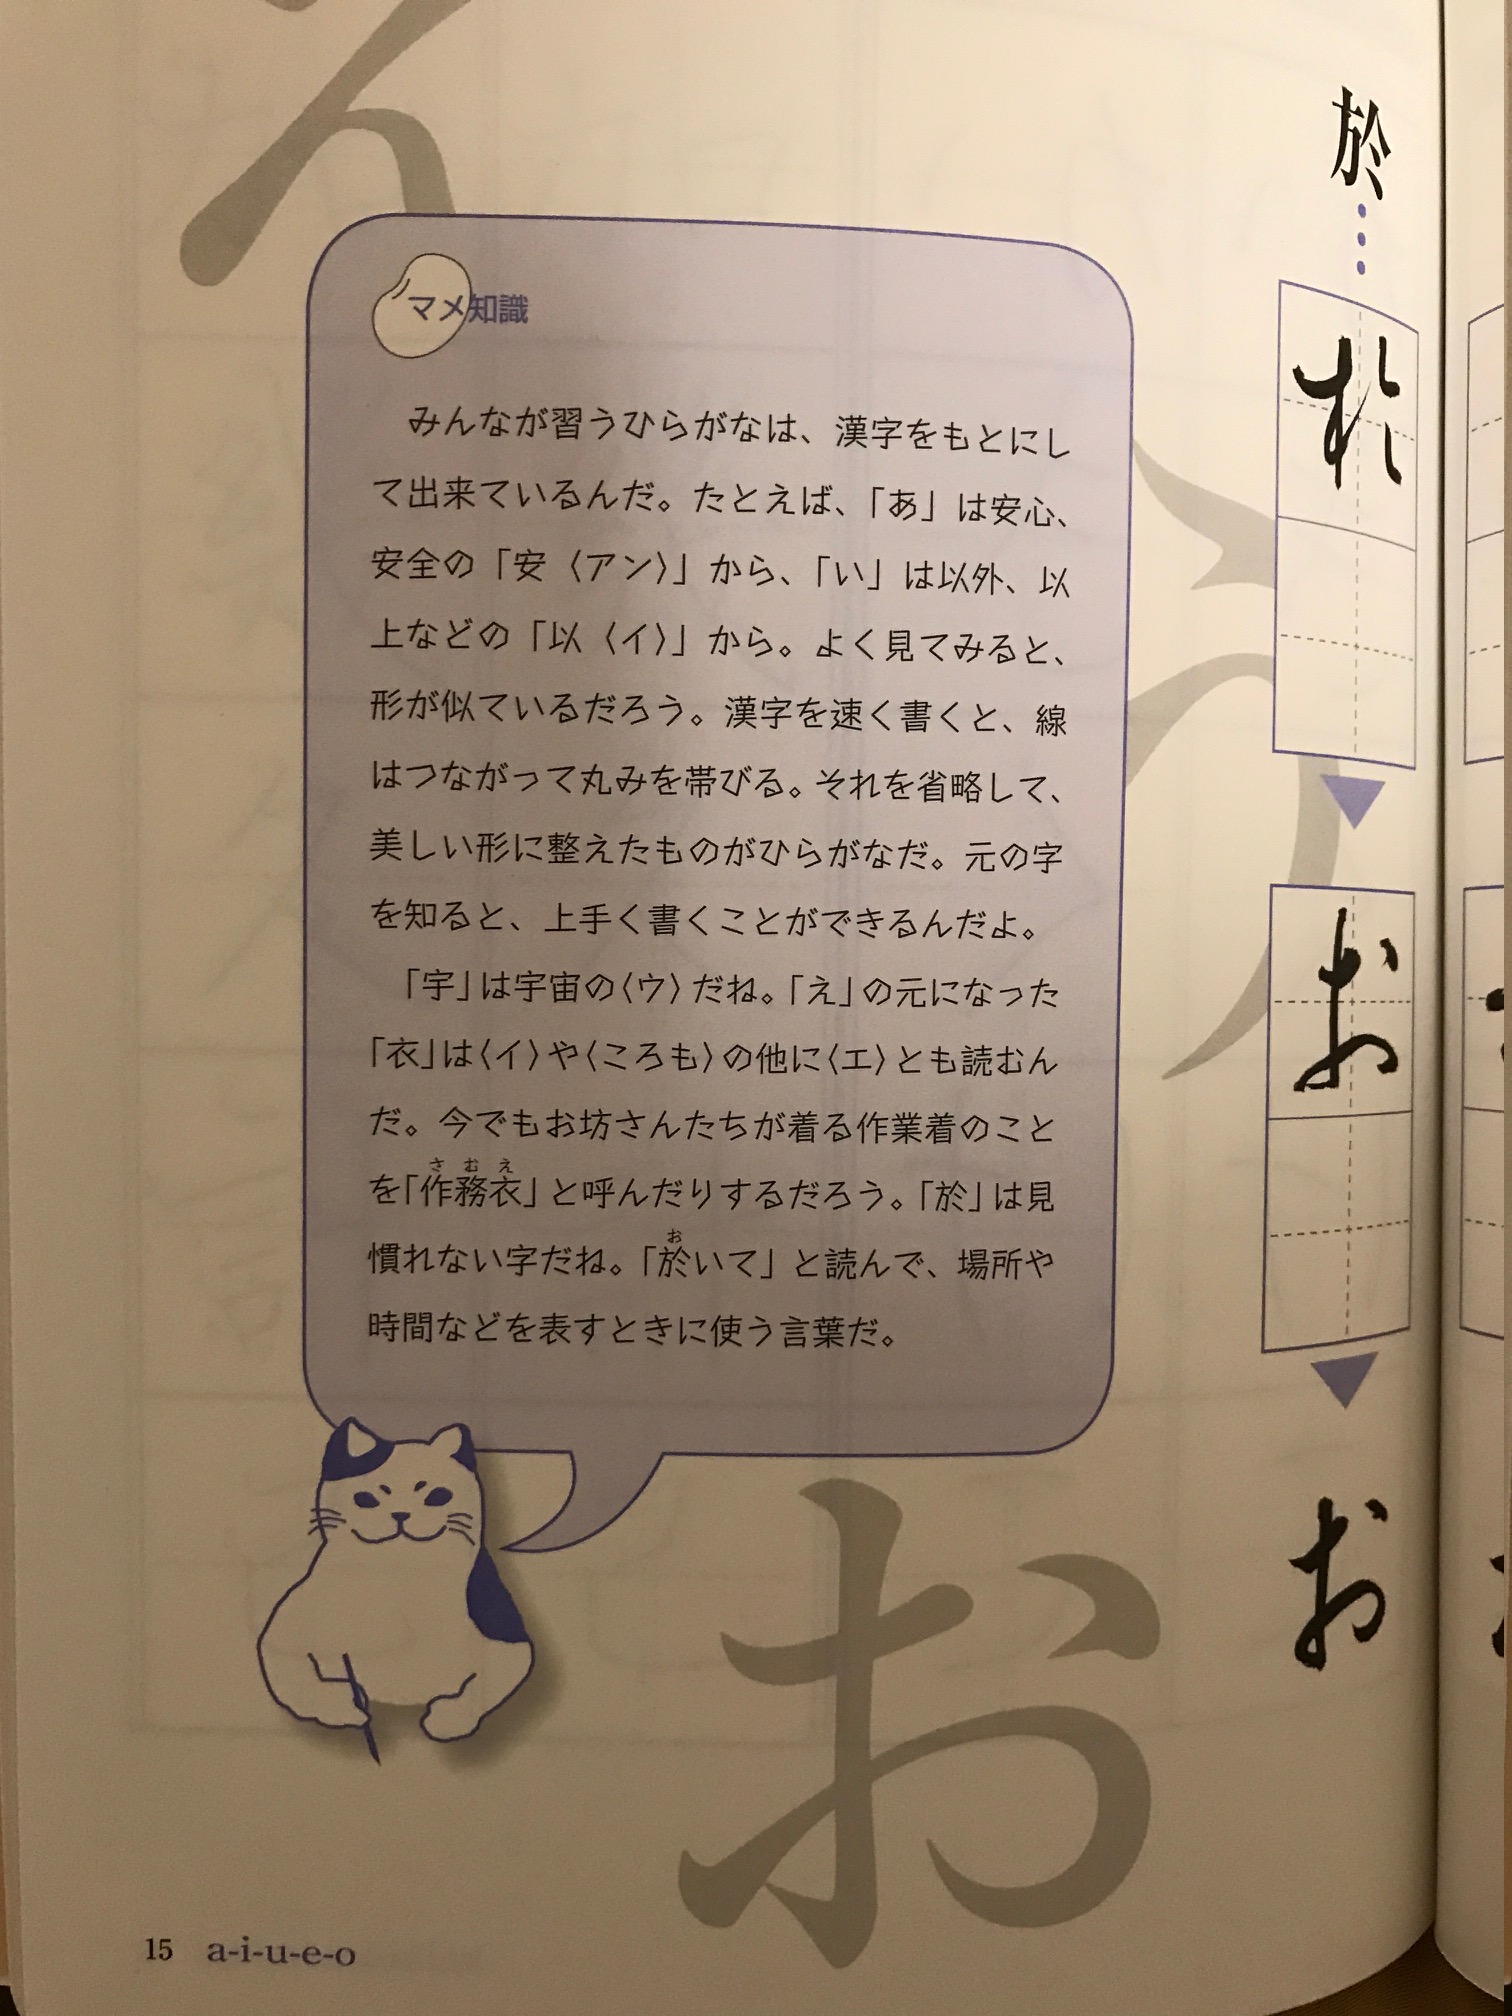 マメ知識
みんなが習うひらがなは、漢字をもとにし
て出来ているんだ。たとえば、「あ」は安心、
安全の「安〈アン〉」から、「い」は以外、以
上などの「以〈イ〉」から。よく見てみると、
形が似ているだろう。漢字を速く書くと、線
はつながって丸みを帯びる。それを省略して、
美しい形に整えたものがひらがなだ。元の字
を知ると、上手く書くことができるんだよ。
「宇」は宇宙の〈ウ〉だね。「え」の元になった
「衣」は〈イ〉や〈ころも〉の他に〈エ〉とも読むん
だ。今でもお坊さんたちが着る作業着のこと
さむえ
を「作務衣」と呼んだりするだろう。「於」は見
お
慣れない字だね。「於いて」と読んで、場所や
時間などを表すときに使う言葉だ。
於
於
お
お
え
う
お
15 a-i-u-e-o